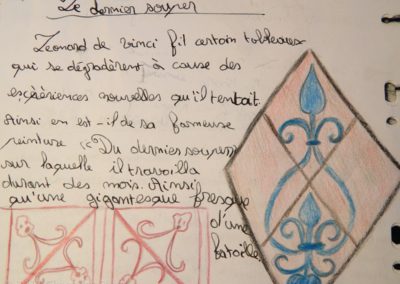 Le dernier souper
Léonard de vinci fit certain tableaux
qui se dégradèrent à cause des
expériences nouvelles qu'il tentait.
Ainsi en est-il de sa fameuse
peinture (Du dernier souper)
sur laquelle il travailla
durant des mois. Ainsi
qu'une gigantesque fresque
d'une
bataille